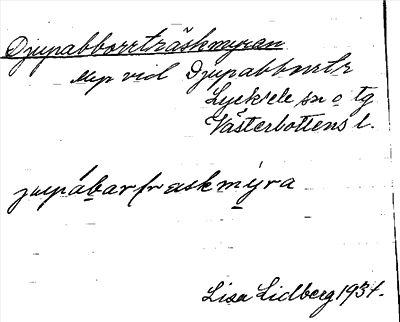 Djupabborrträskmyran
Myr vid Djupabborrtr
Lycksele sn o tg
Västerbottens l.
jupábarfraskmýra
Lisa Lidberg 1931.